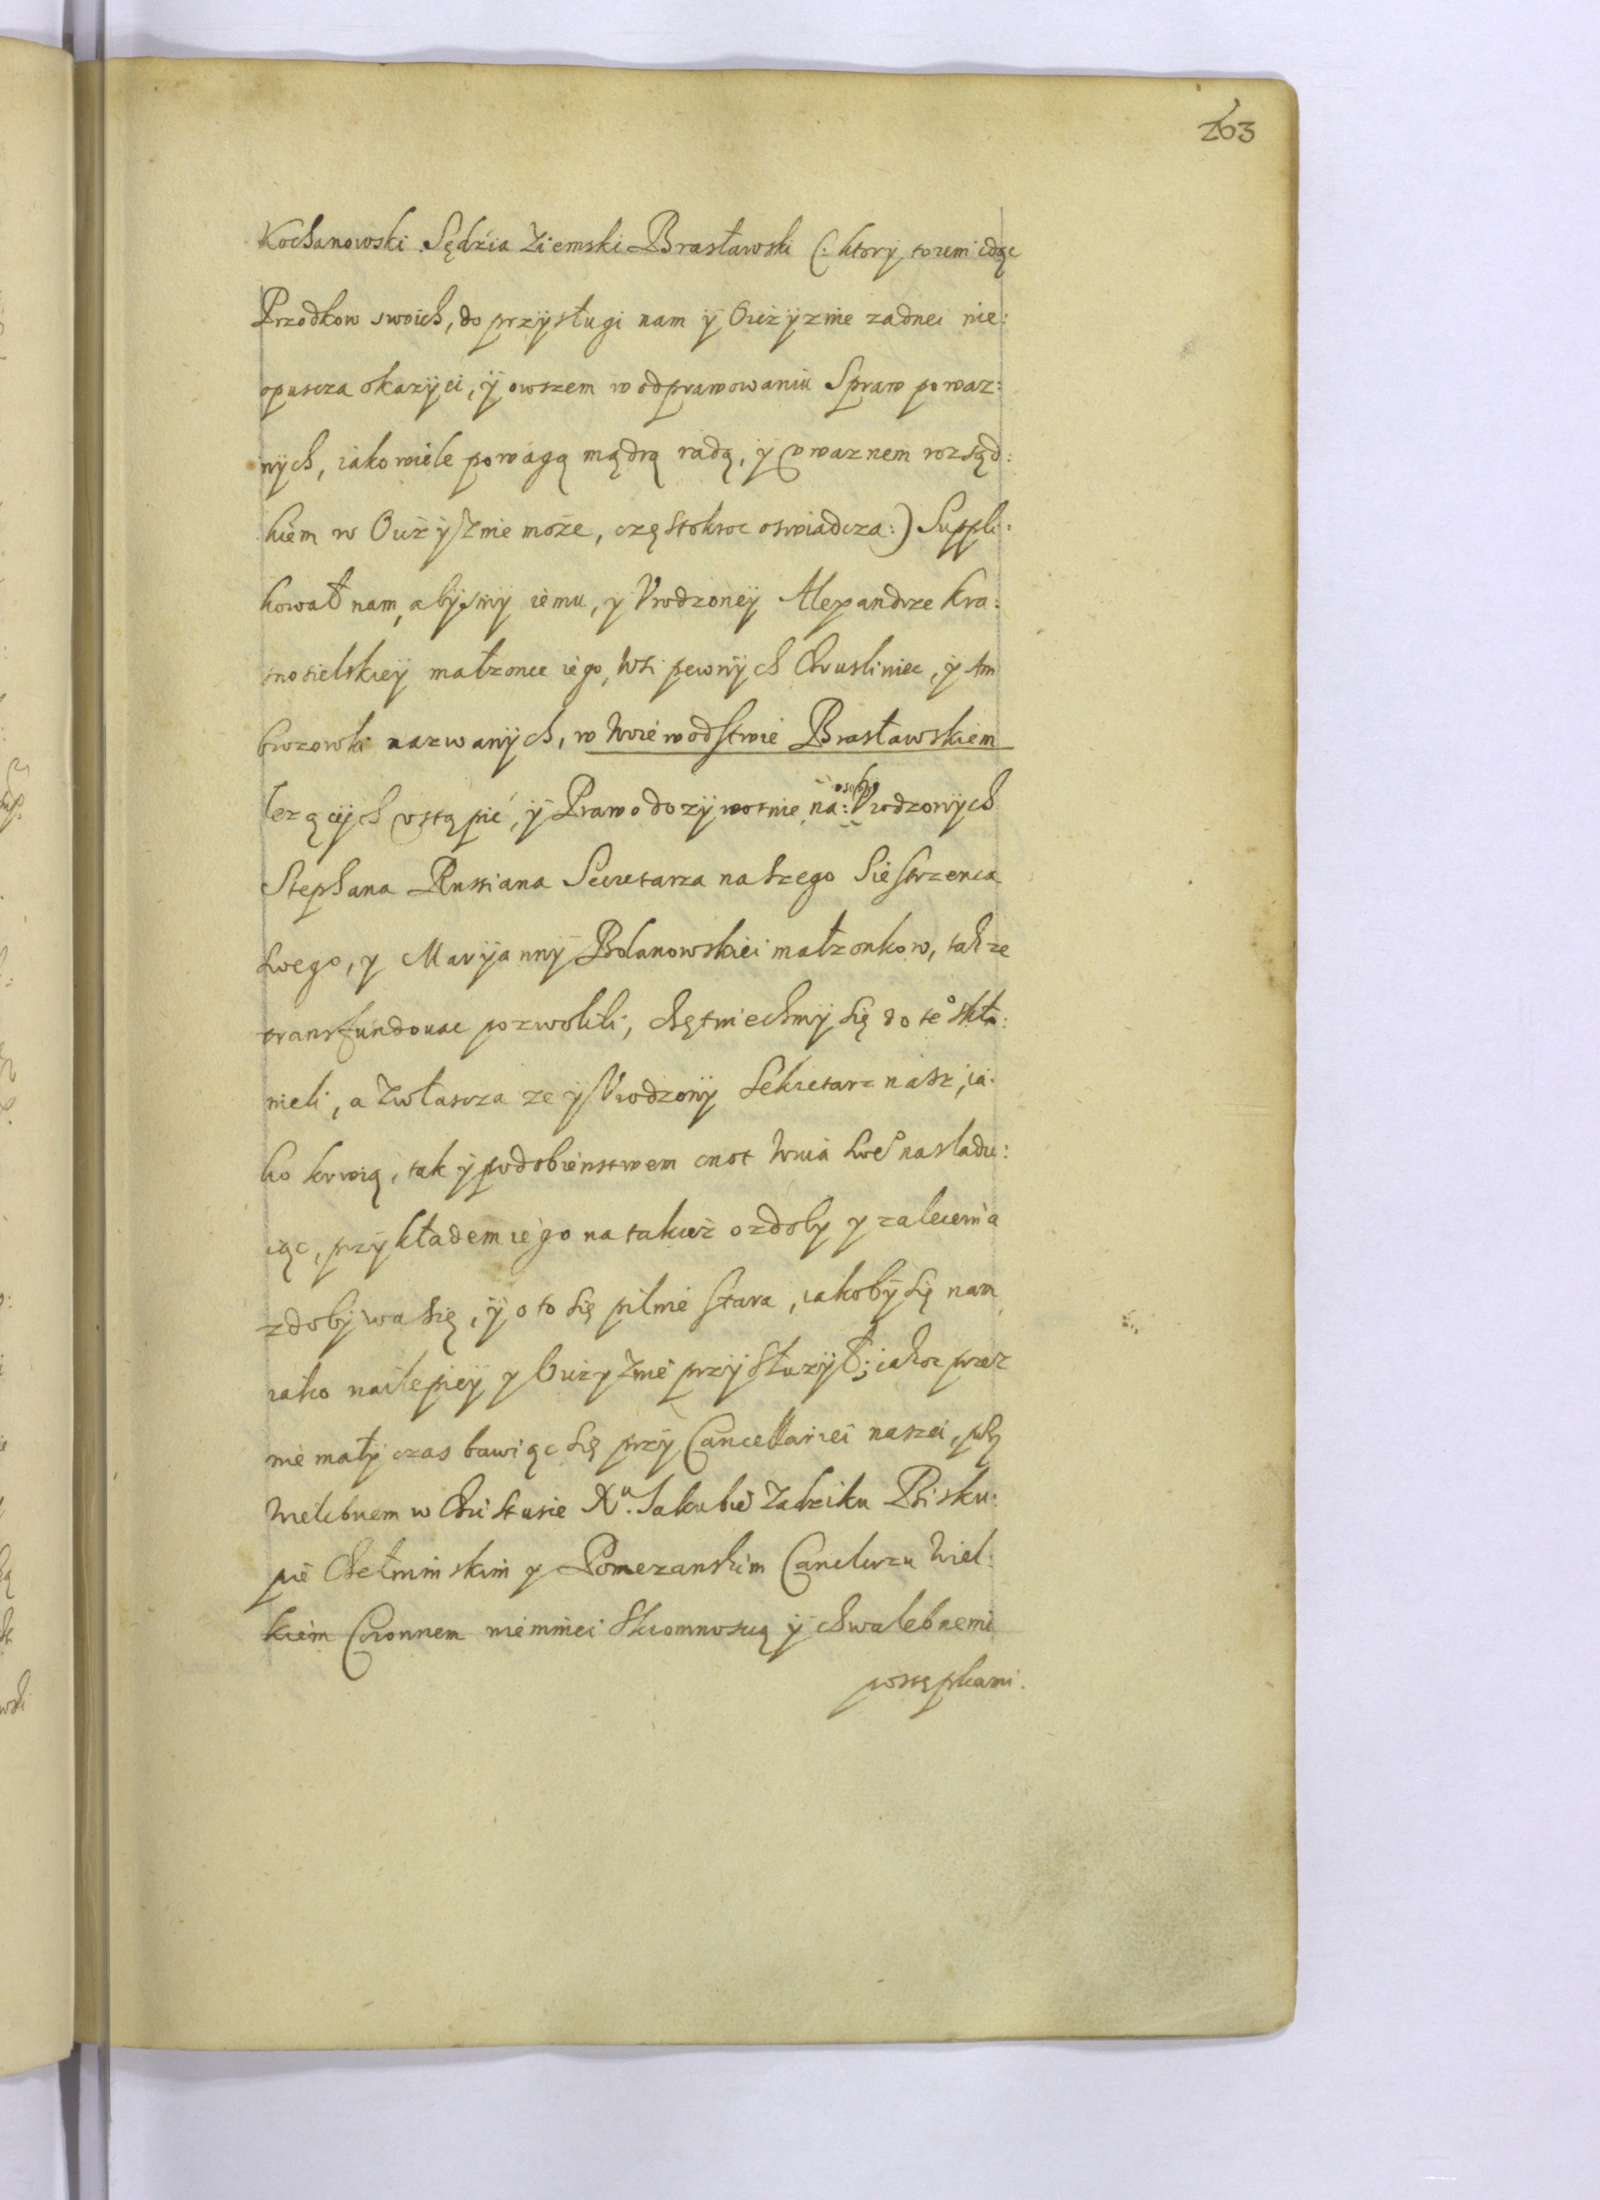 263
Kochanowski Sędzia Ziemski Brasławski (: ktory torem idąc
Przodkow swoich, do przysługi nam ÿ Oiczyznie zadnei nie:
opuscza okazÿei, ÿ owszem w odprawowaniu Spraw powaz:
nÿch, iako wiele powagą mądrą radą, ÿ vwaznem rozsąd:
kiem w Oiczÿznie może, częstokroc oswiadcza:) Suppli:
kował nam, abÿsmy iemu, y Vrodzoneÿ Alexandrze Kra:
snosielskieÿ małzonce iego, wsi pewnÿch Chrusliniec, ÿ Am
brozowki nazwanÿch, w Woiewodstwie Brasławskiem
lezącÿch vstąpić, ÿ Prawo dozÿwotnie na: osobÿ Vrodzonÿch
Stephana Russiana Secretarza naszego Siestrzenca
swego, y Marÿannÿ Bolanowskiei małzonkow, takze
transfundouac pozwolili, chętniechmÿ się do te° skła:
nieli, a zwłascza ze ÿ Vrodzonÿ Sekretarz nasz, ia:
ko krwią, tak ÿ podobienstwem cnot Wuia swe° nasladu:
iąc, przÿkładem iego na takież ozdoby y zalecenia
zdobÿwa się, ÿ o to się pilnie stara, iakobÿ się nam
iako nailepieÿ y Oiczyznie przÿsłuzÿł; iakoz przez
nie małÿ czas bawiąc się przÿ Cancellariei naszei, przÿ
Wielebnem w Christusie Xu. Jakubie Zadziku Bisku:
pie Chełminskim y Pomezanskim Canclerzu Wiel:
kiem Coronnem niemniei skromnoscią ÿ chwalebnemi
postępkami.